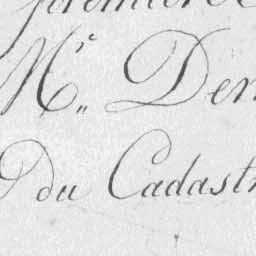 première
Mr. Den
du Cadastr